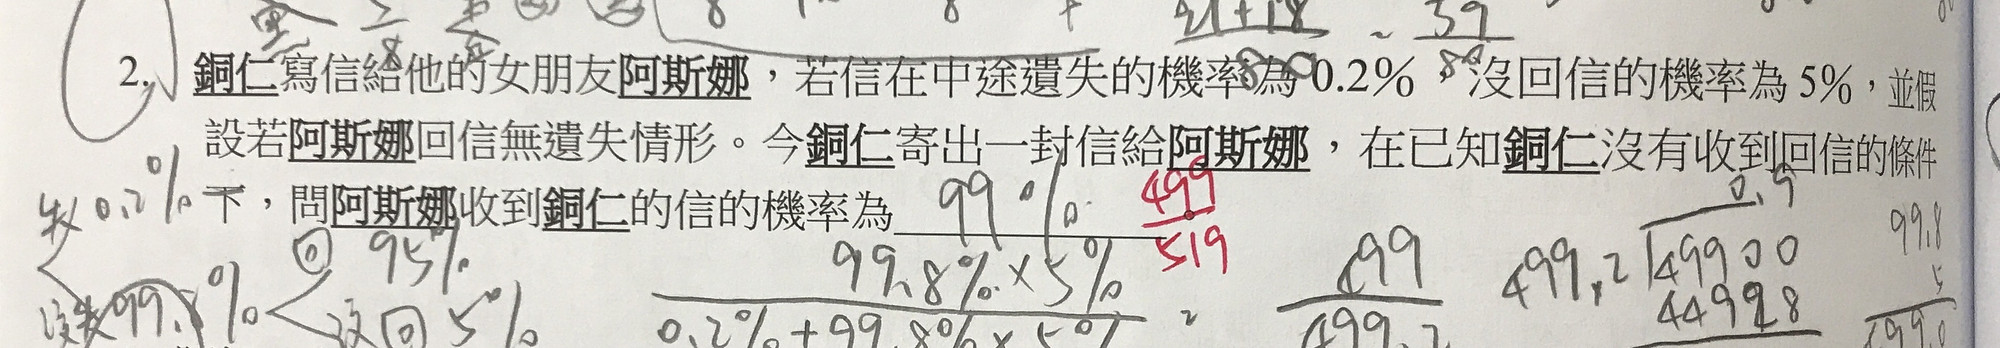 21+18 39
8 8 + 80 80
2. 銅仁寫信給他的女朋友阿斯娜，若信在中途遺失的機率為0.2%，沒回信的機率為5%，並假
設若阿斯娜回信無遺失情形。今銅仁寄出一封信給阿斯娜，在已知銅仁沒有收到回信的條件
下，問阿斯娜收到銅仁的信的機率為 99% 499/519
失 0.2%
回 95%
沒回 5%
99.8%×5%
0.2%+99.8%×5%
499
499.2
0.9
499.2 49900
44928
99.8
5